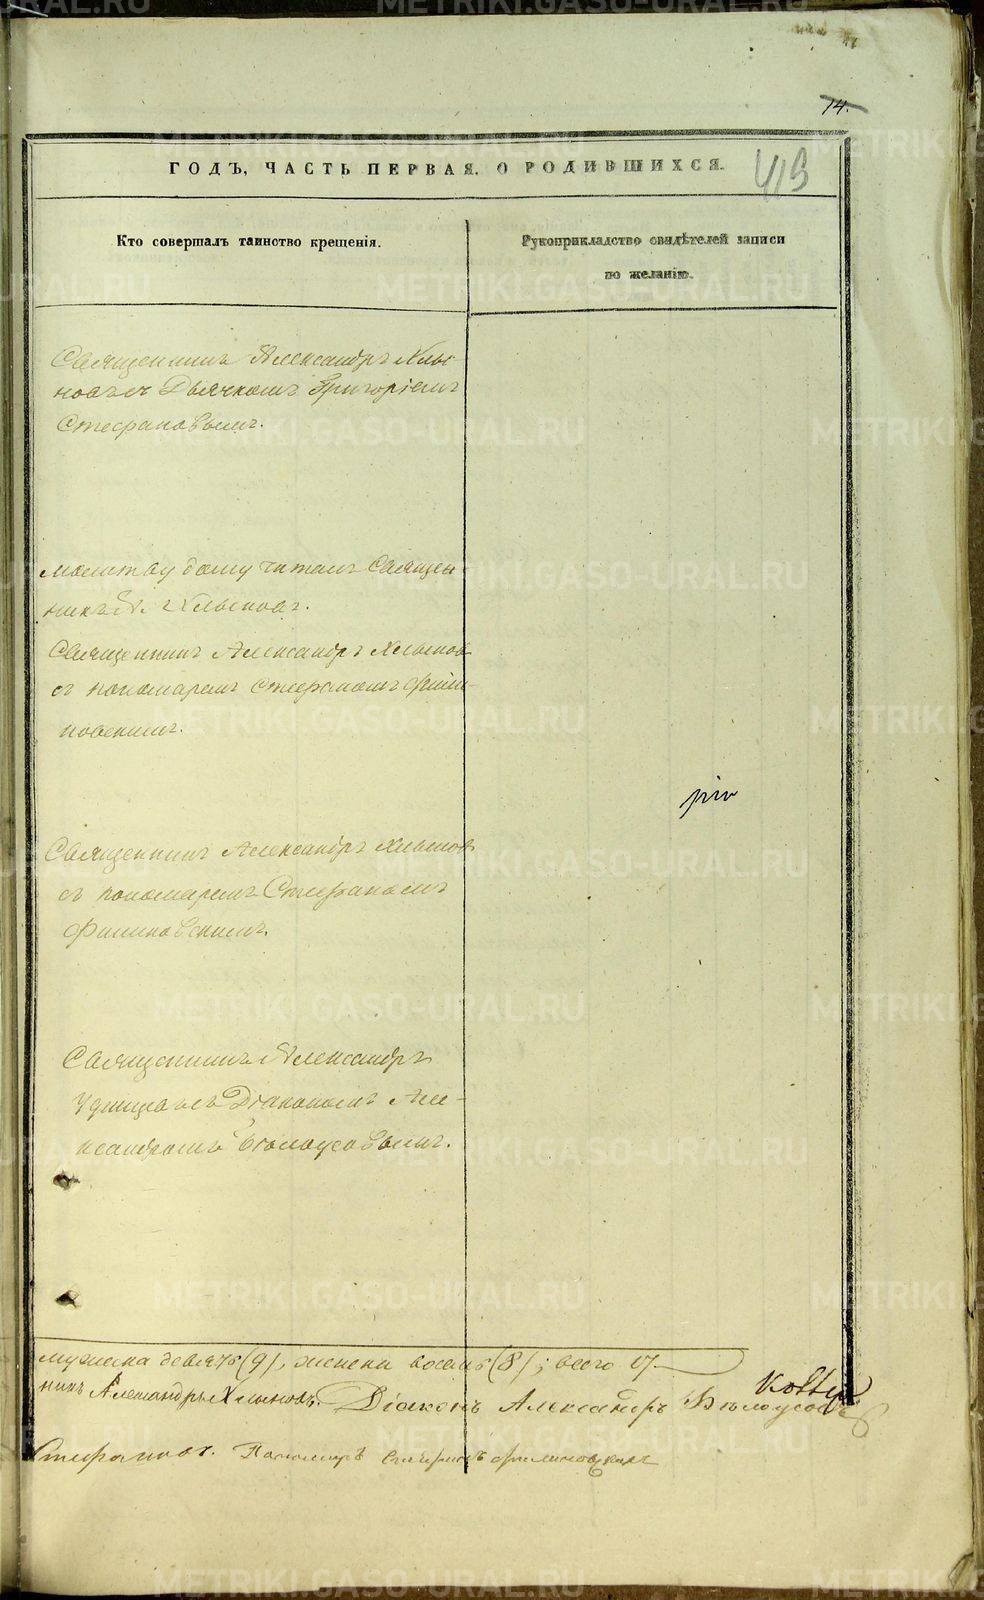 14.
ГОДЪ, ЧАСТЬ ПЕРВАЯ. О РОДИВШИХСЯ.
Кто совершалъ таинство крещенія.
Рукоприкладство свидѣтелей записи
по желанію.
Священникъ Александръ Хлы-
новъ съ Дьячкомъ Григоріемъ
Стефановымъ.
Молитву дому читалъ Священ-
никъ А. Хлыновъ.
Священникъ Александръ Хлыновъ
съ пономаремъ Стефаномъ Фили-
новскимъ.
Священникъ Александръ Хлыновъ
съ пономаремъ Стефаномъ
Филиновскимъ.
Священникъ Александръ
съ Діакономъ Але-
ксандромъ Бѣлоусовымъ.
мужеска девять (9), женска восемь (8); всего 17
никъ Александръ Хлыновъ. Діаконъ Александръ Бѣлоусовъ
Стефановъ. Пономарь Стефанъ Филиновскій
METRIKI.GASO-URAL.RU